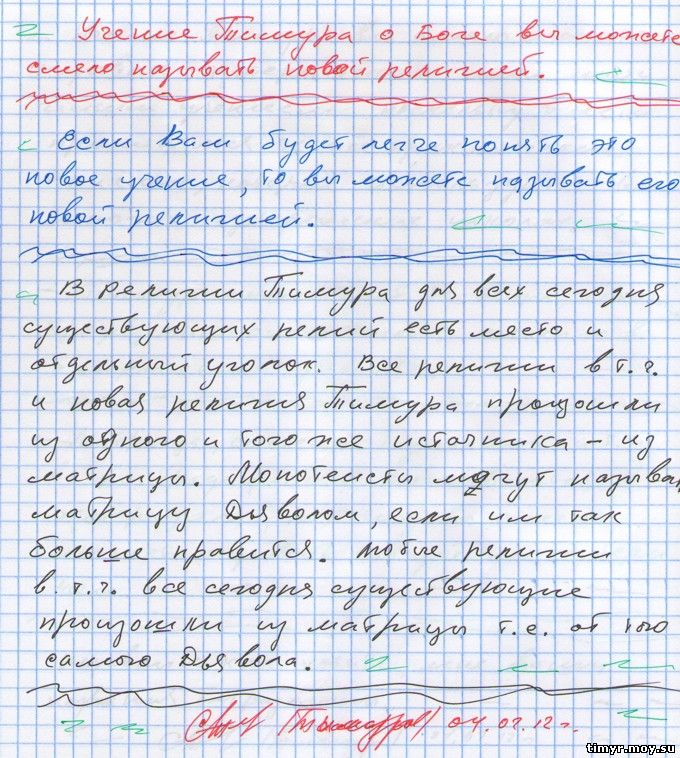 Учение Тимура о Боге вы можете
смело называть новой религией.
Если Вам будет легче понять это
новое учение, то вы можете называть его
новой религией.
В религии Тимура для всех сегодня
существующих релий есть место и
отдельный уголок. Все религии в т.ч.
и новая религия Тимура произошли
из одного и того же источника – из
матрицы. Монотеисты могут называ
матрицу Дьяволом, если им так
больше нравится. Любые религии
в.т.ч. все сегодня существующие
произошли из матрицы т.е. от того
самого Дьявола.
04.02.12г.
timyr.moy.su